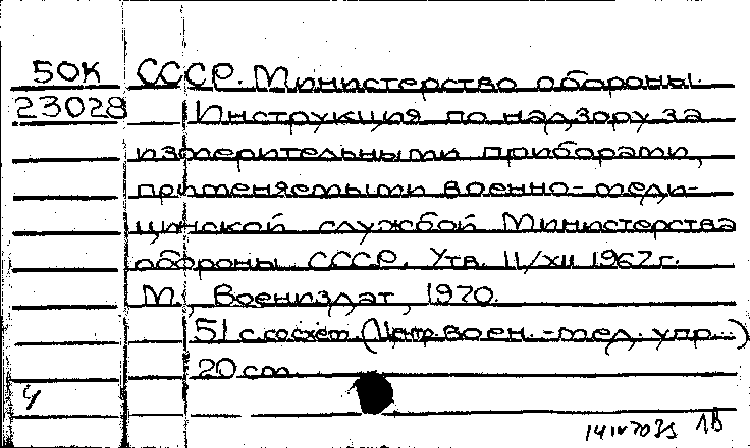 50К СССР. Министерство обороны.
23028 Инструкция по надзору за
измерительными приборами,
применяемыми военно-меди-
цинской службой Министерства
обороны СССР. Утв. 11/XII 1967 г.
М., Воениздат, 1970.
51 с. с схем. (Центр. воен.-мед. упр...)
20 см.